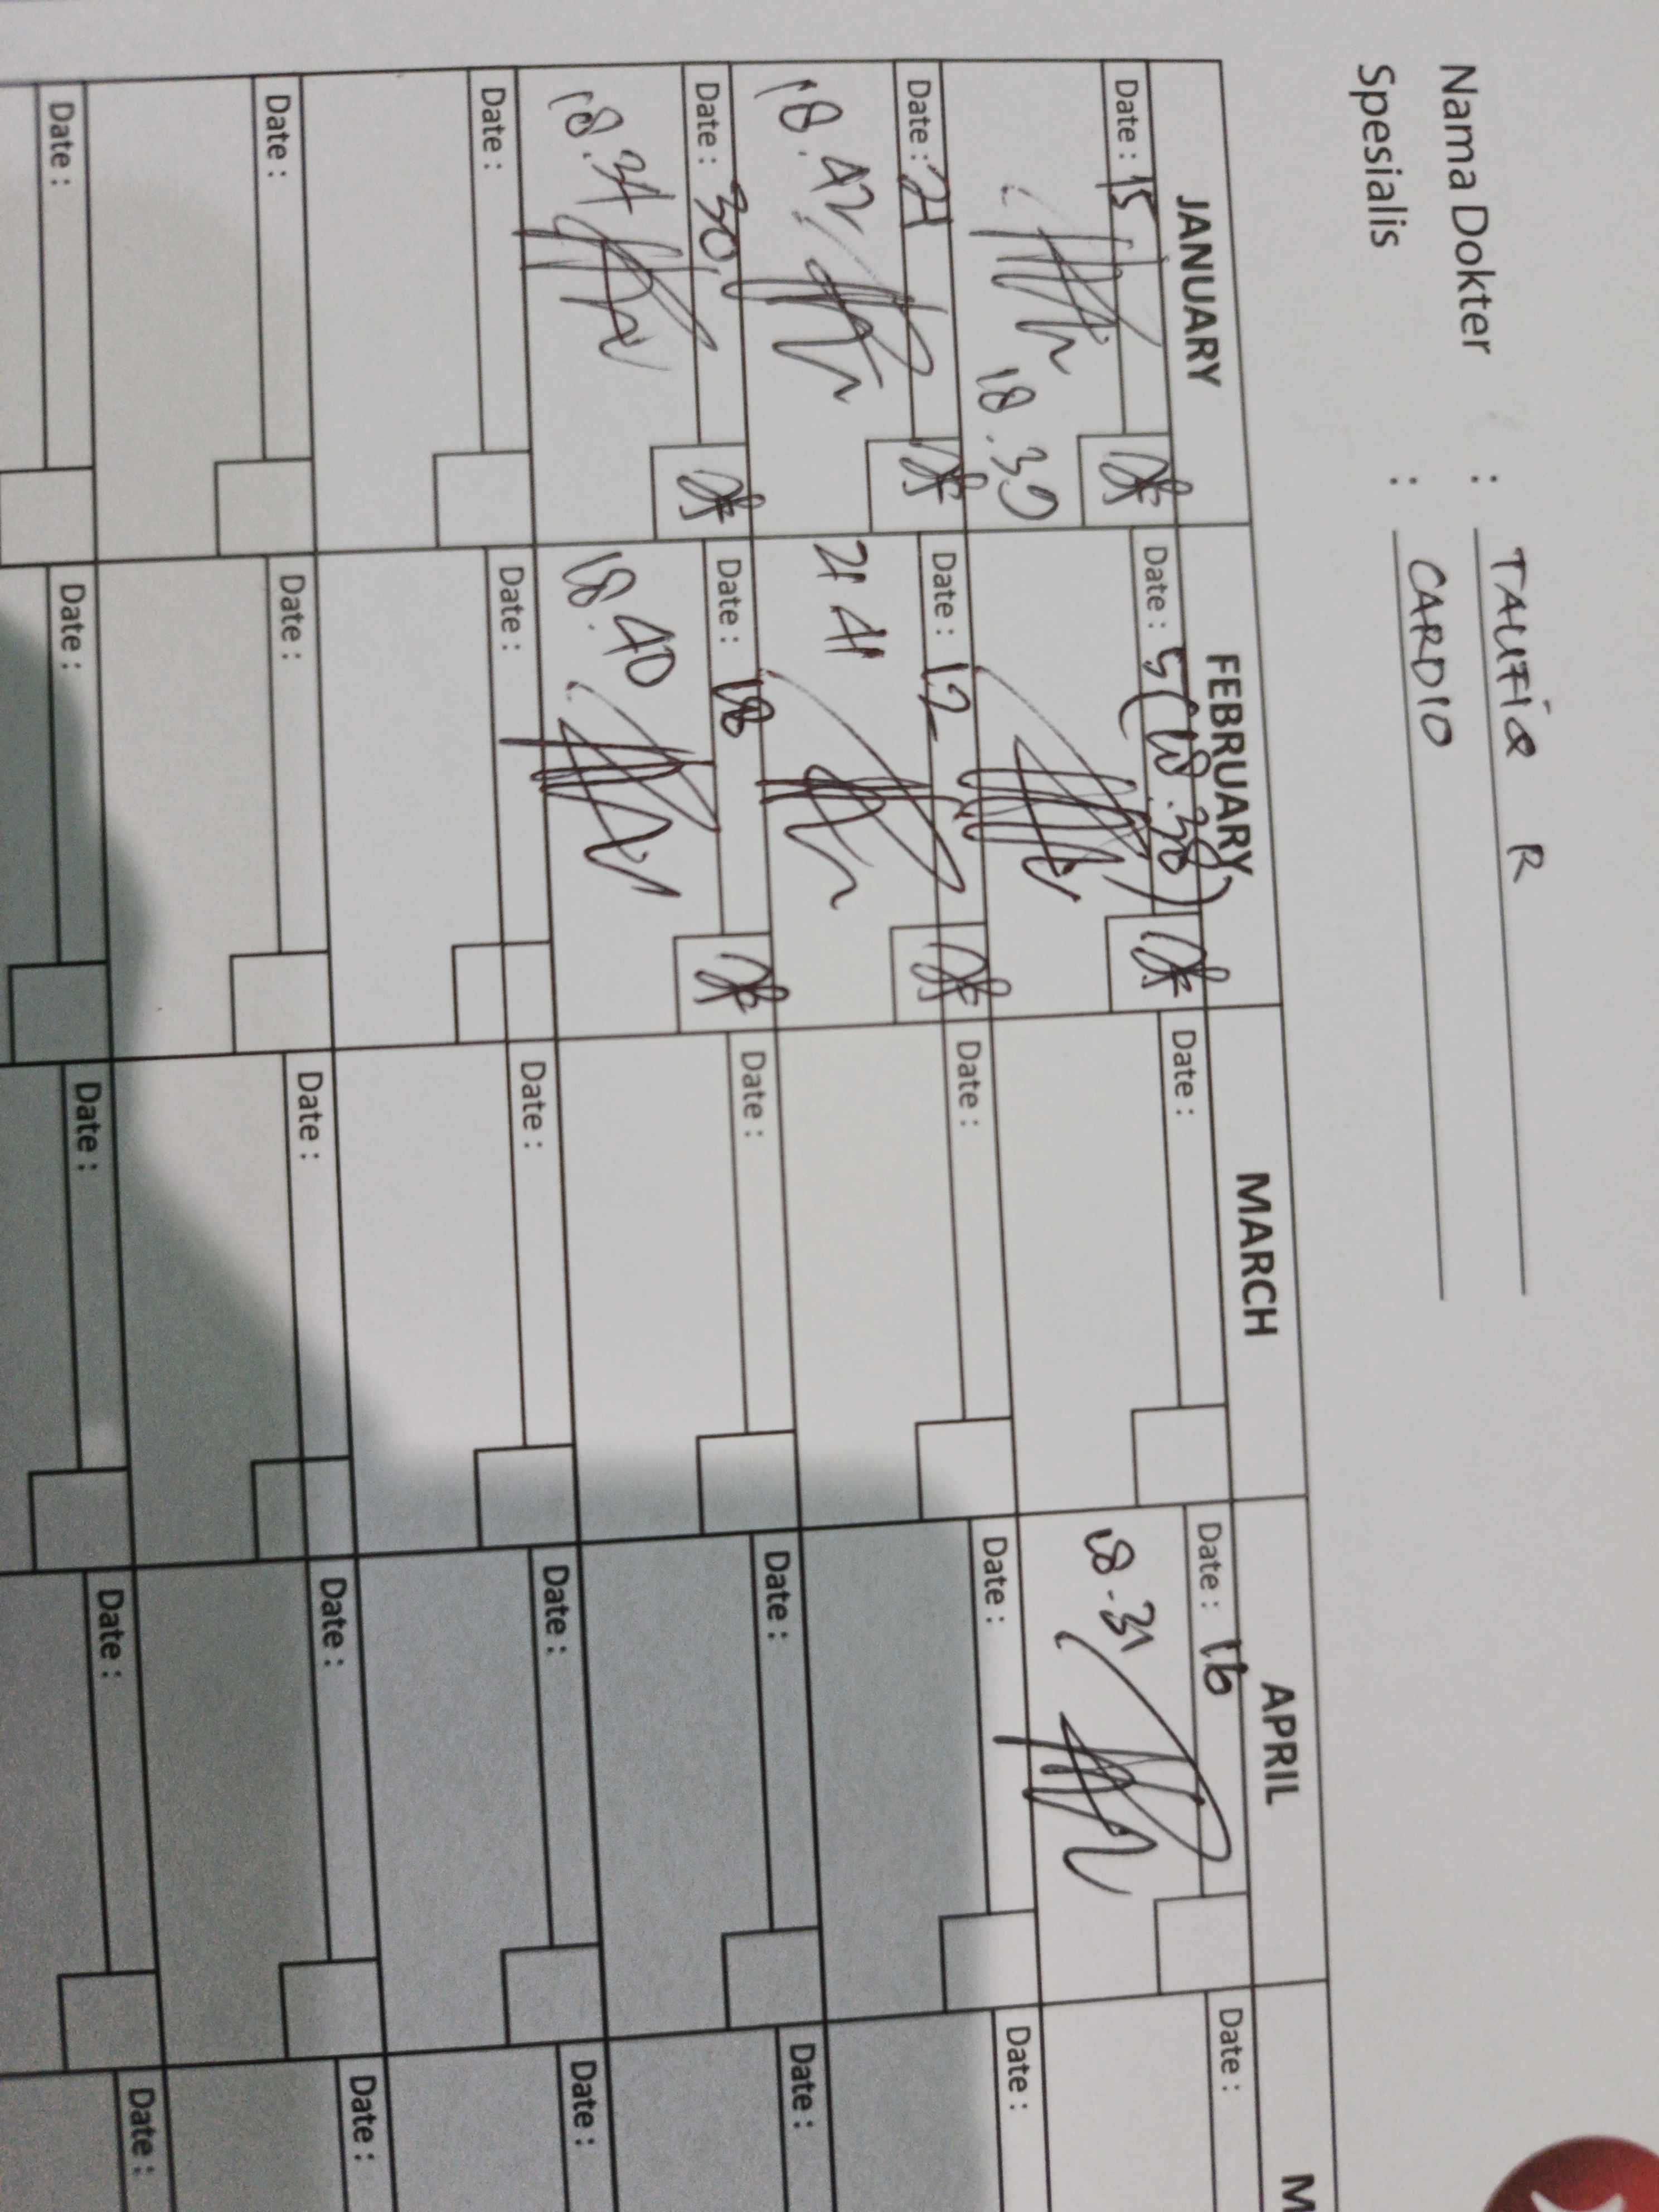 Nama Dokter : TAUFIQ R
Spesialis : CARDIO
JANUARY FEBRUARY MARCH APRIL M
Date : 15 Date : 5 (18.38) Date : Date : 16 Date :
18.39 18.31
Date : 21 Date : 12 Date : Date : Date :
18.42 21 41
Date : 30 Date : 18 Date : Date : Date :
18.34 18.40
Date : Date : Date : Date : Date :
Date : Date : Date : Date : Date :
Date : Date : Date : Date : Date :